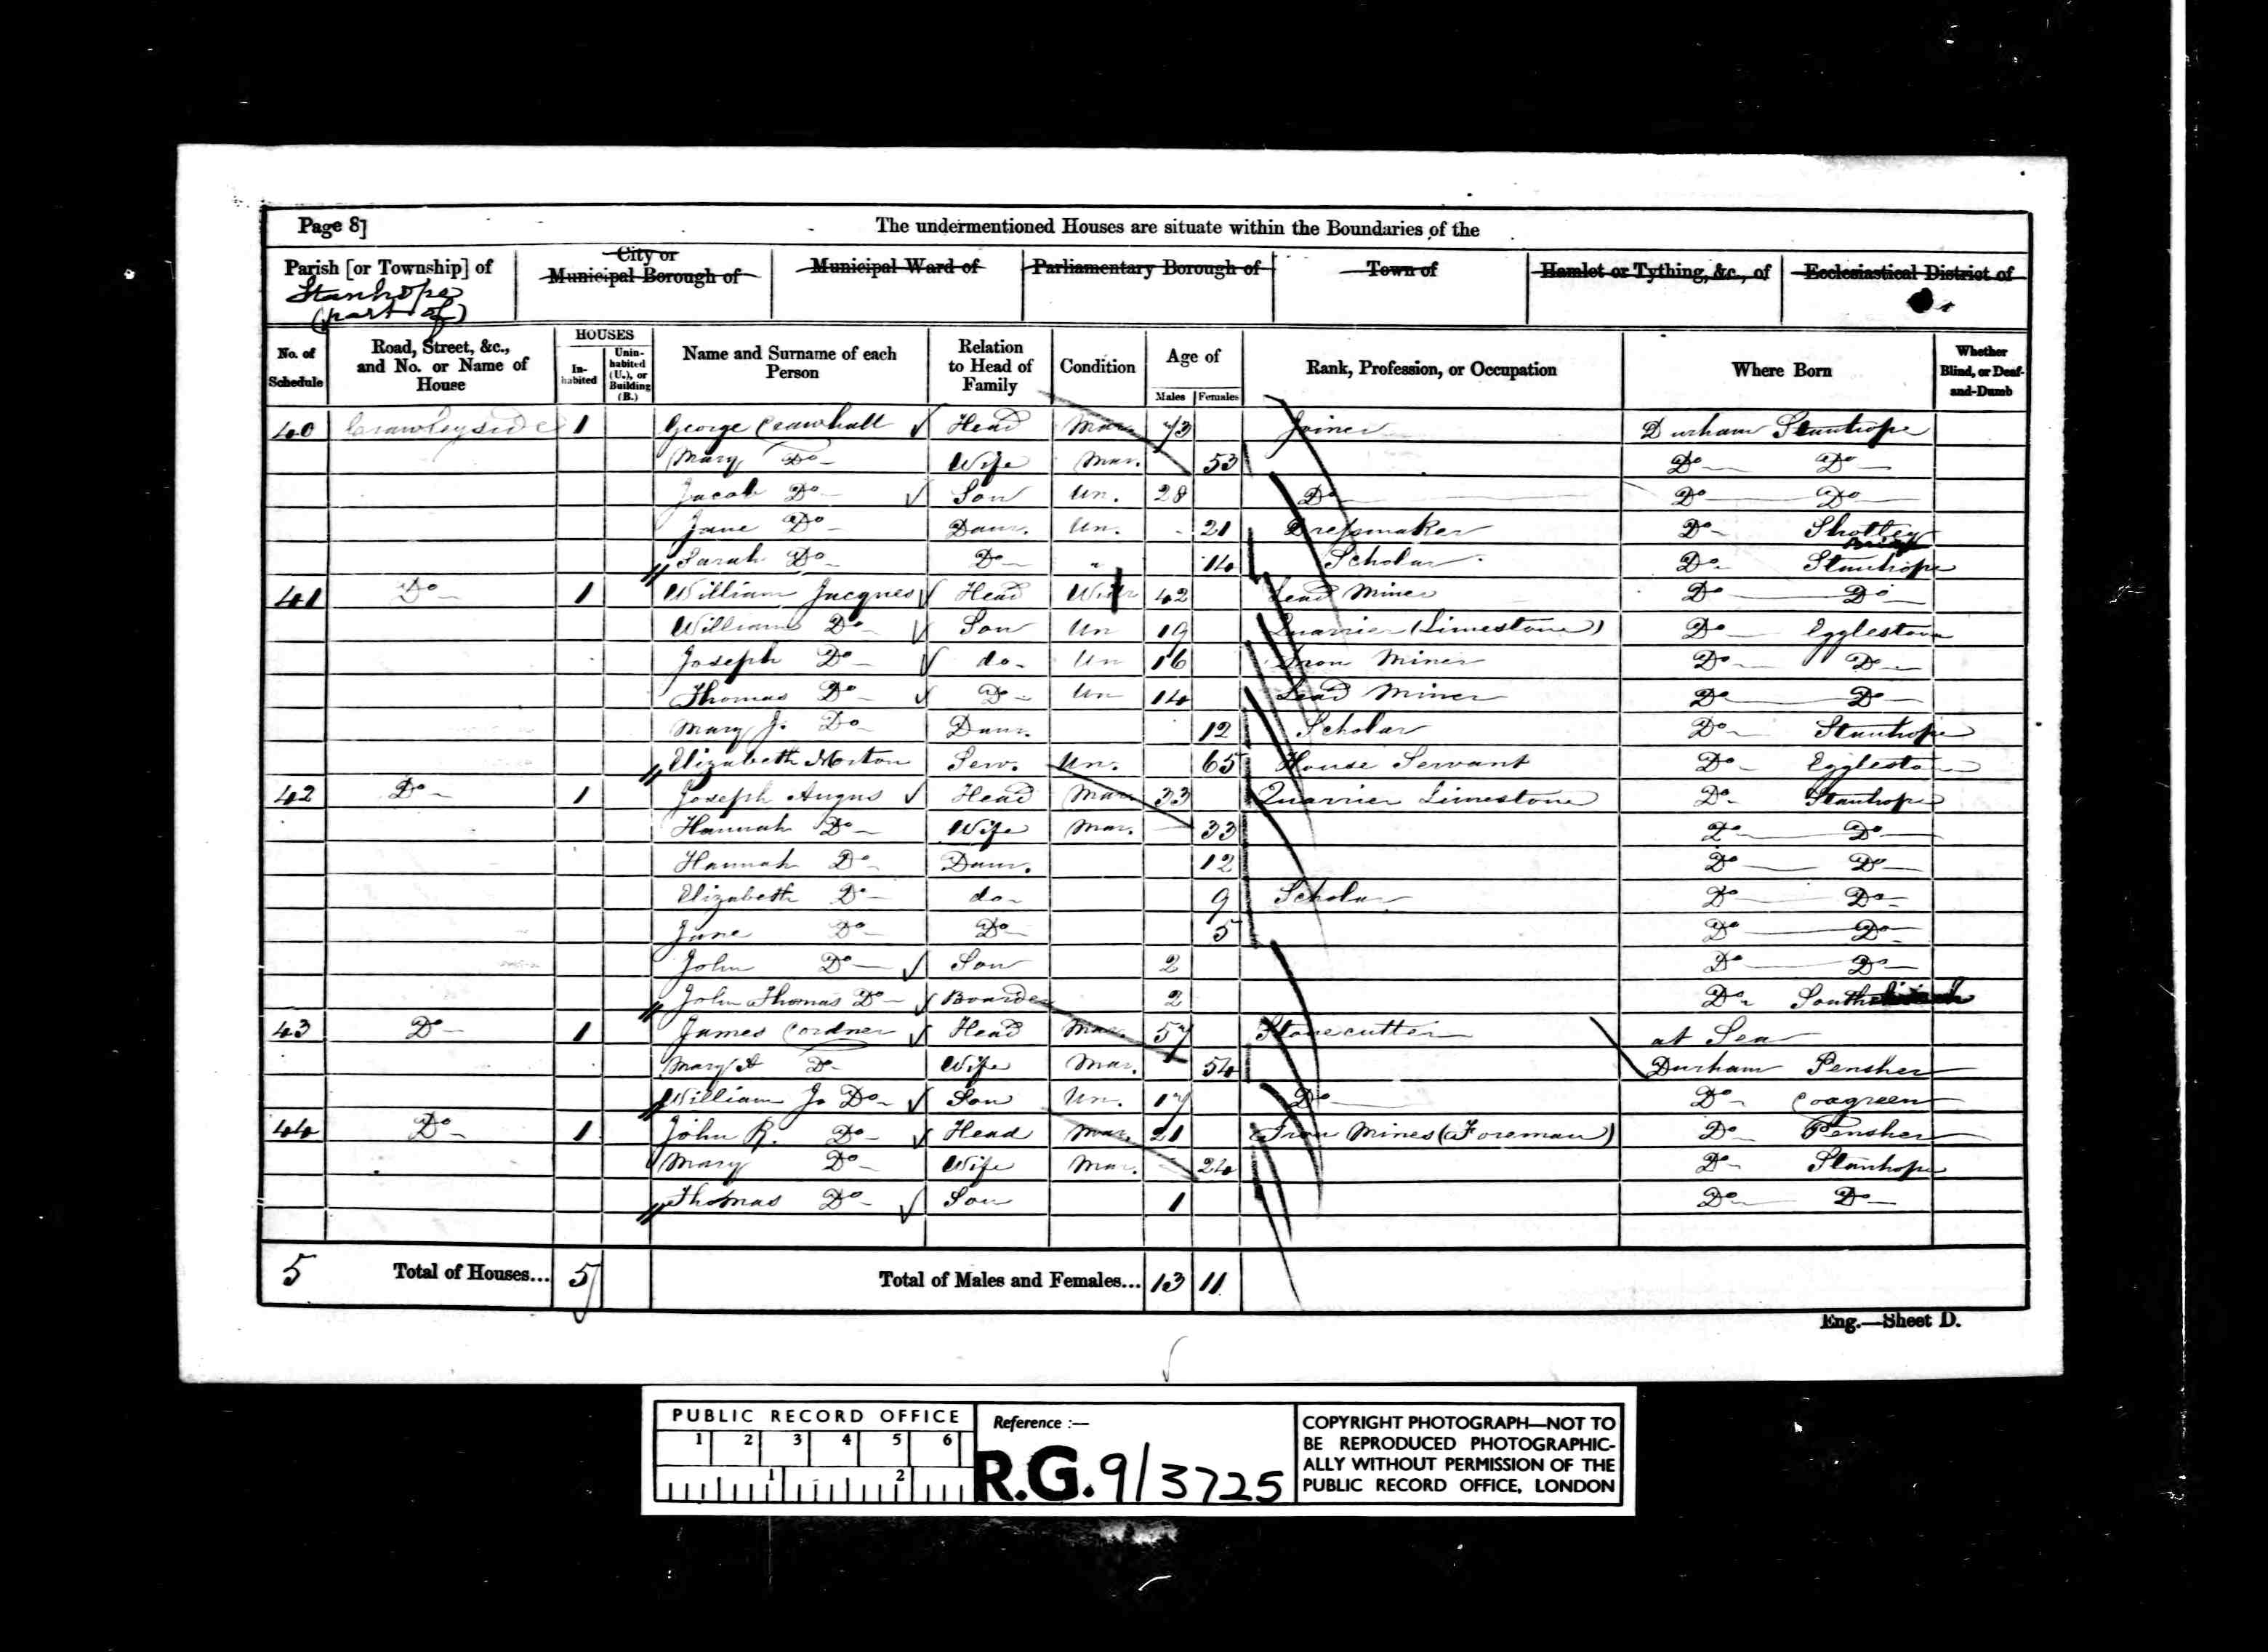 Page 8]
The undermentioned Houses are situate within the Boundaries of the
Parish [or Township] of
Stanhope
(part of)
City or
Municipal Borough of
Municipal Ward of
Parliamentary Borough of
Town of
Hamlet or Tything, &c., of
Ecclesiastical District of
No. of Schedule
Road, Street, &c., and No. or Name of House
HOUSES
In-habited
Unin-habited (U.), or Building (B.)
Name and Surname of each Person
Relation to Head of Family
Condition
Age of
Males
Females
Rank, Profession, or Occupation
Where Born
Whether Blind, or Deaf-and-Dumb
40 Crawleyside 1 George Crawhall Head Mar. 73 Joiner Durham Stanhope
Mary Do Wife Mar. 53 Do Do
Jacob Do Son Un. 28 Do Do Do
Jane Do Daur. Un. 21 Dressmaker Do Shotley
Sarah Do Do " 14 Scholar Do Stanhope
41 Do 1 William Jacques Head Widr 42 Lead Miner Do Do
William Do Son Un 19 Quarrier (Limestone) Do Egglestone
Joseph Do do Un 16 Iron Miner Do Do
Thomas Do Do Un 14 Lead Miner Do Do
Mary J. Do Daur. 12 Scholar Do Stanhope
Elizabeth Serv. Un. 65 House Servant Do Egglestone
42 Do 1 Joseph Angus Head Mar 33 Quarrier Limestone Do Stanhope
Hannah Do Wife Mar. 33 Do Do
Hannah Do Daur. 12 Do Do
Elizabeth Do do 9 Scholar Do Do
Jane Do Do 5 Do Do
John Do Son 2 Do Do
John Thomas Do Boarder 2 Do
43 Do 1 James Cordner Head Mar. 57 Stonecutter at Sea
Mary A Do Wife Mar. 54 Durham Pensher
William J. Do Son Un. 17 Do Do Coxgreen
44 Do 1 John R. Do Head Mar. 21 Iron Mines (Foreman) Do Pensher
Mary Do Wife Mar. 24 Do Stanhope
Thomas Do Son 1 Do Do
5 Total of Houses... 5 Total of Males and Females... 13 11
Eng.—Sheet D.
PUBLIC RECORD OFFICE
1 2 3 4 5 6
1 2
Reference :—
R.G. 9/3725
COPYRIGHT PHOTOGRAPH—NOT TO
BE REPRODUCED PHOTOGRAPHIC-
ALLY WITHOUT PERMISSION OF THE
PUBLIC RECORD OFFICE, LONDON